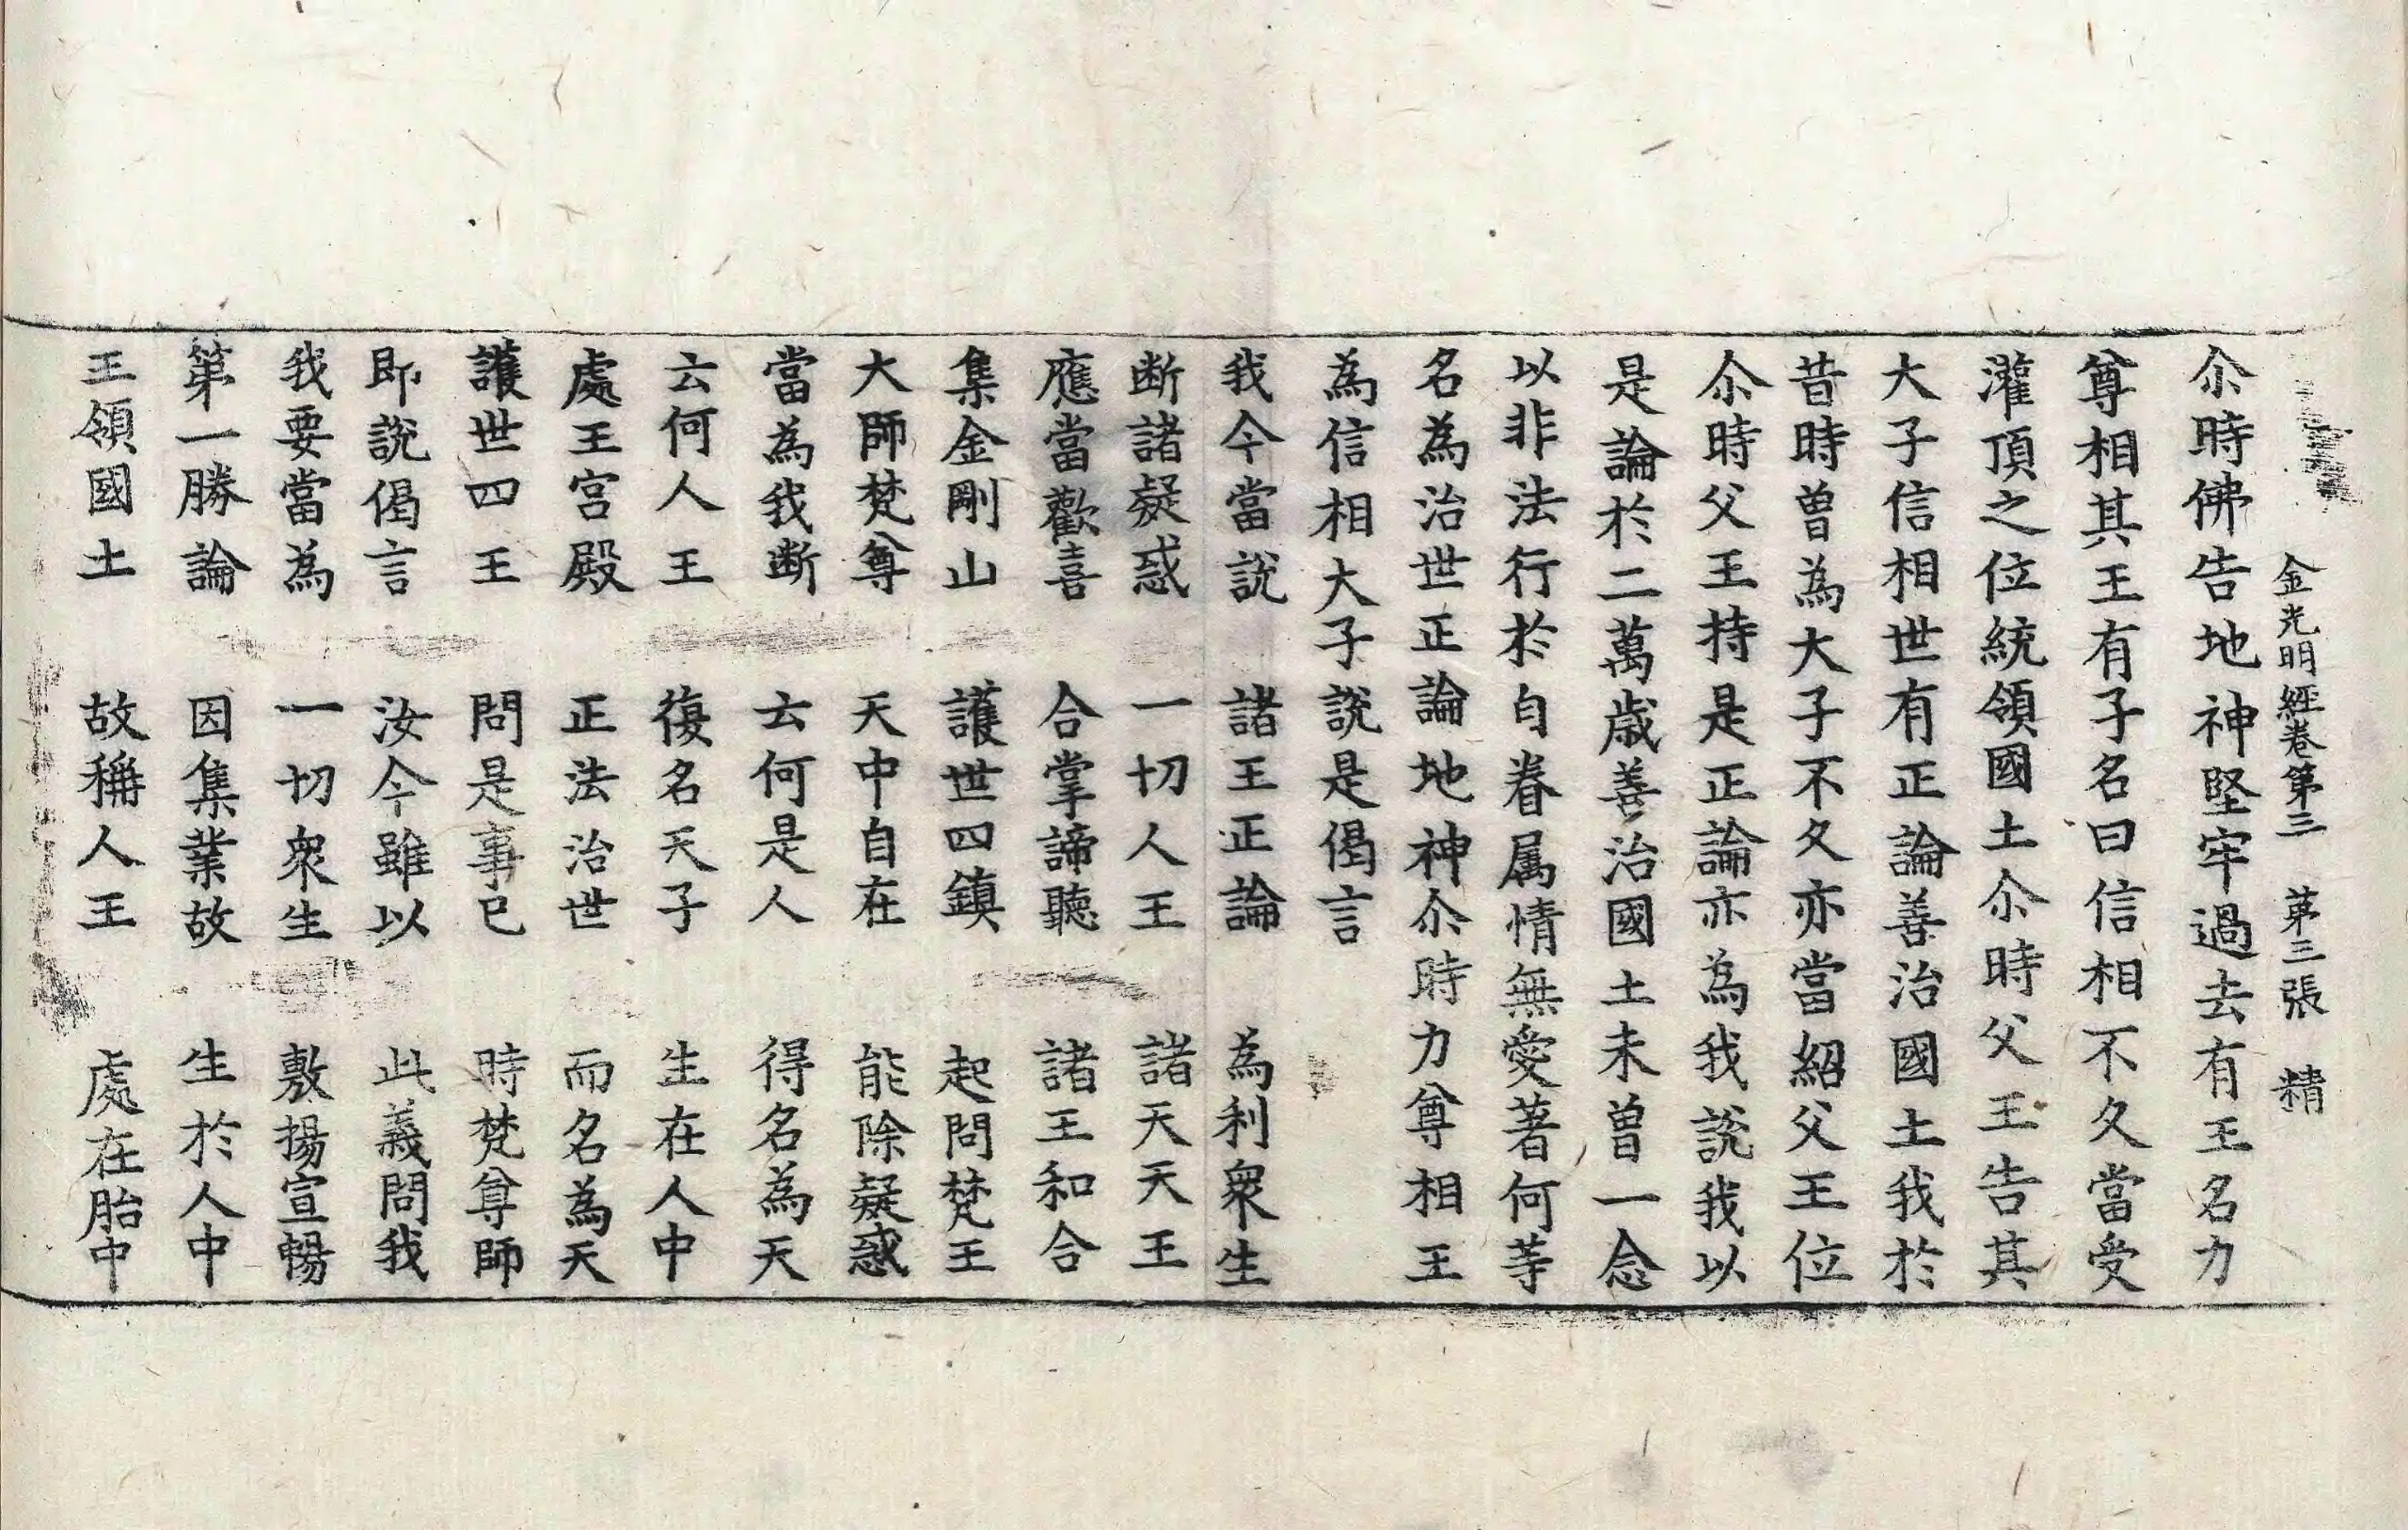 金光明經卷第三　第三張　精
尒時佛告地神堅牢過去有王名力
尊相其王有子名曰信相不久當受
灌頂之位統領國土尒時父王告其
大子信相世有正論善治國土我於
昔時曾為大子不久亦當紹父王位
尒時父王持是正論亦為我說我以
是論於二萬歲善治國土未曾一念
以非法行於自眷属情無愛著何等
名為治世正論地神尒時力尊相王
為信相大子說是偈言
我今當說　諸王正論　為利衆生
断諸疑惑　一切人王　諸天天王
應當歡喜　合掌諦聽　諸王和合
集金剛山　護世四鎮　起問梵王
大師梵尊　天中自在　能除疑惑
當為我断　云何是人　得名為天
云何人王　復名天子　生在人中
處王宮殿　正法治世　而名為天
護世四王　問是事已　時梵尊師
即說偈言　汝今雖以　此義問我
我要當為　一切衆生　敷揚宣暢
第一勝論　因集業故　生於人中
王領國土　故稱人王　處在胎中